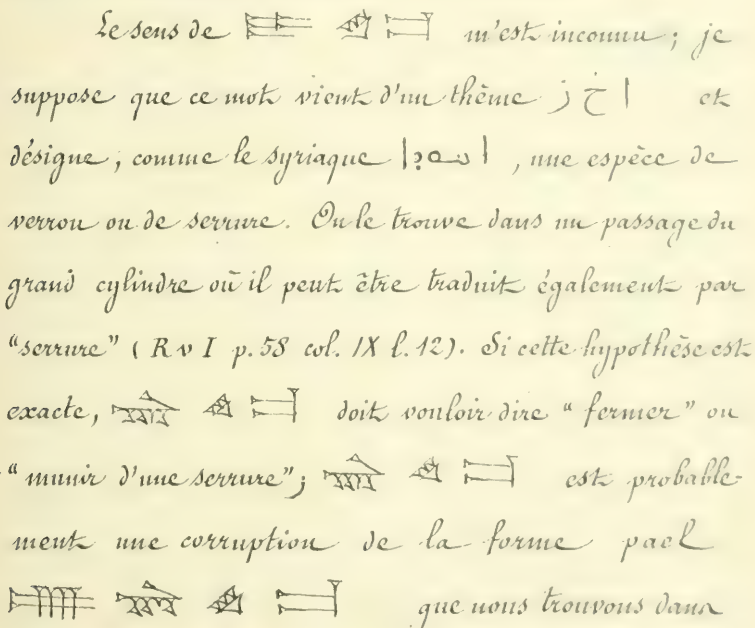 Le sens de m'est inconnu; je
suppose que ce mot vient d'un thème ا خ ز et
désigne, comme le syriaque ܐܚܘܕܐ, une espèce de
verrou ou de serrure. On le trouve dans un passage du
grand cylindre où il peut être traduit également par
"serrure" (R v I p. 58 col. IX l. 12). Si cette hypothèse est
exacte, doit vouloir dire "fermer" ou
"munir d'une serrure"; est probable-
ment une corruption de la forme pael
que nous trouvons dans